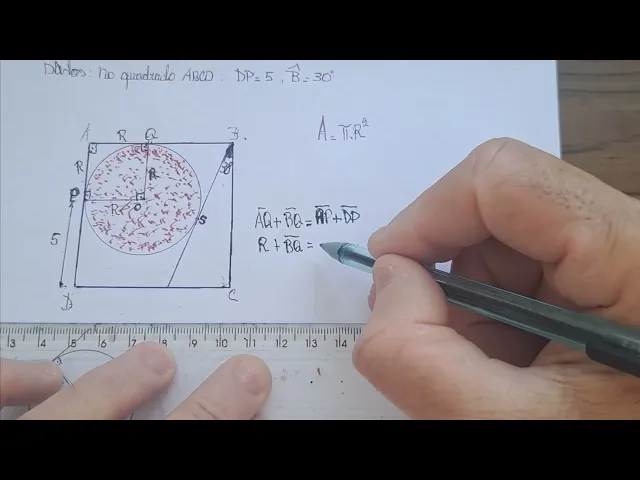 Dados: No quadrado ABCD: DP=5, B̂=30°
A R Q B.
A = π.R²
R
R
P
R O
5
5
A̅Q̅ + B̅Q̅ = A̅P̅ + D̅P̅
R + B̅Q̅ =
D C
3 4 5 6 7 8 9 10 11 12 13 14